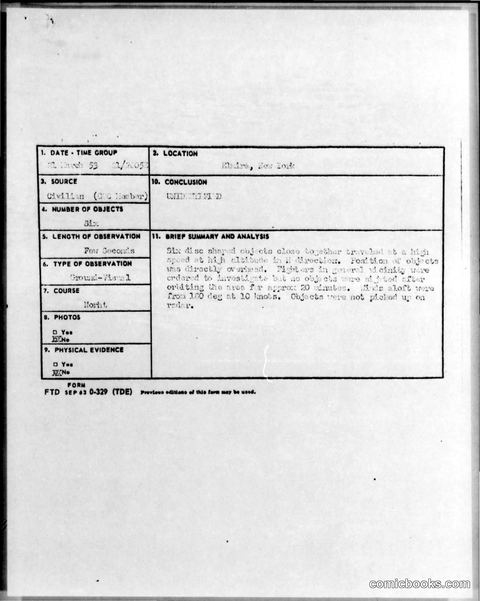 1. DATE - TIME GROUP
21 March 53
2. LOCATION
Elmira, New York
3. SOURCE
Civilian (GOC Member)
10. CONCLUSION
UNIDENTIFIED
4. NUMBER OF OBJECTS
Six
5. LENGTH OF OBSERVATION
Few Seconds
11. BRIEF SUMMARY AND ANALYSIS
Six disc shaped objects close together traveled at a high
speed at high altitude in N direction. Position of objects
was directly overhead. Fighters in general vicinity were
ordered to investigate but no objects were sighted after
orbiting the area for approx 20 minutes. Winds aloft were
from 180 deg at 10 knots. Objects were not picked up on
radar.
6. TYPE OF OBSERVATION
Ground-Visual
7. COURSE
North
8. PHOTOS
□ Yes
No
9. PHYSICAL EVIDENCE
□ Yes
No
FORM
FTD SEP 63 0-329 (TDE) Previous editions of this form may be used.
comicbooks.com